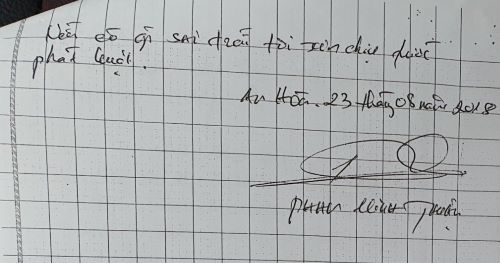 Nếu có gì sai trái tôi xin chịu trước
phát luật.
An Hòa. 23 tháng 08 năm 2018
Phan Minh Thuận